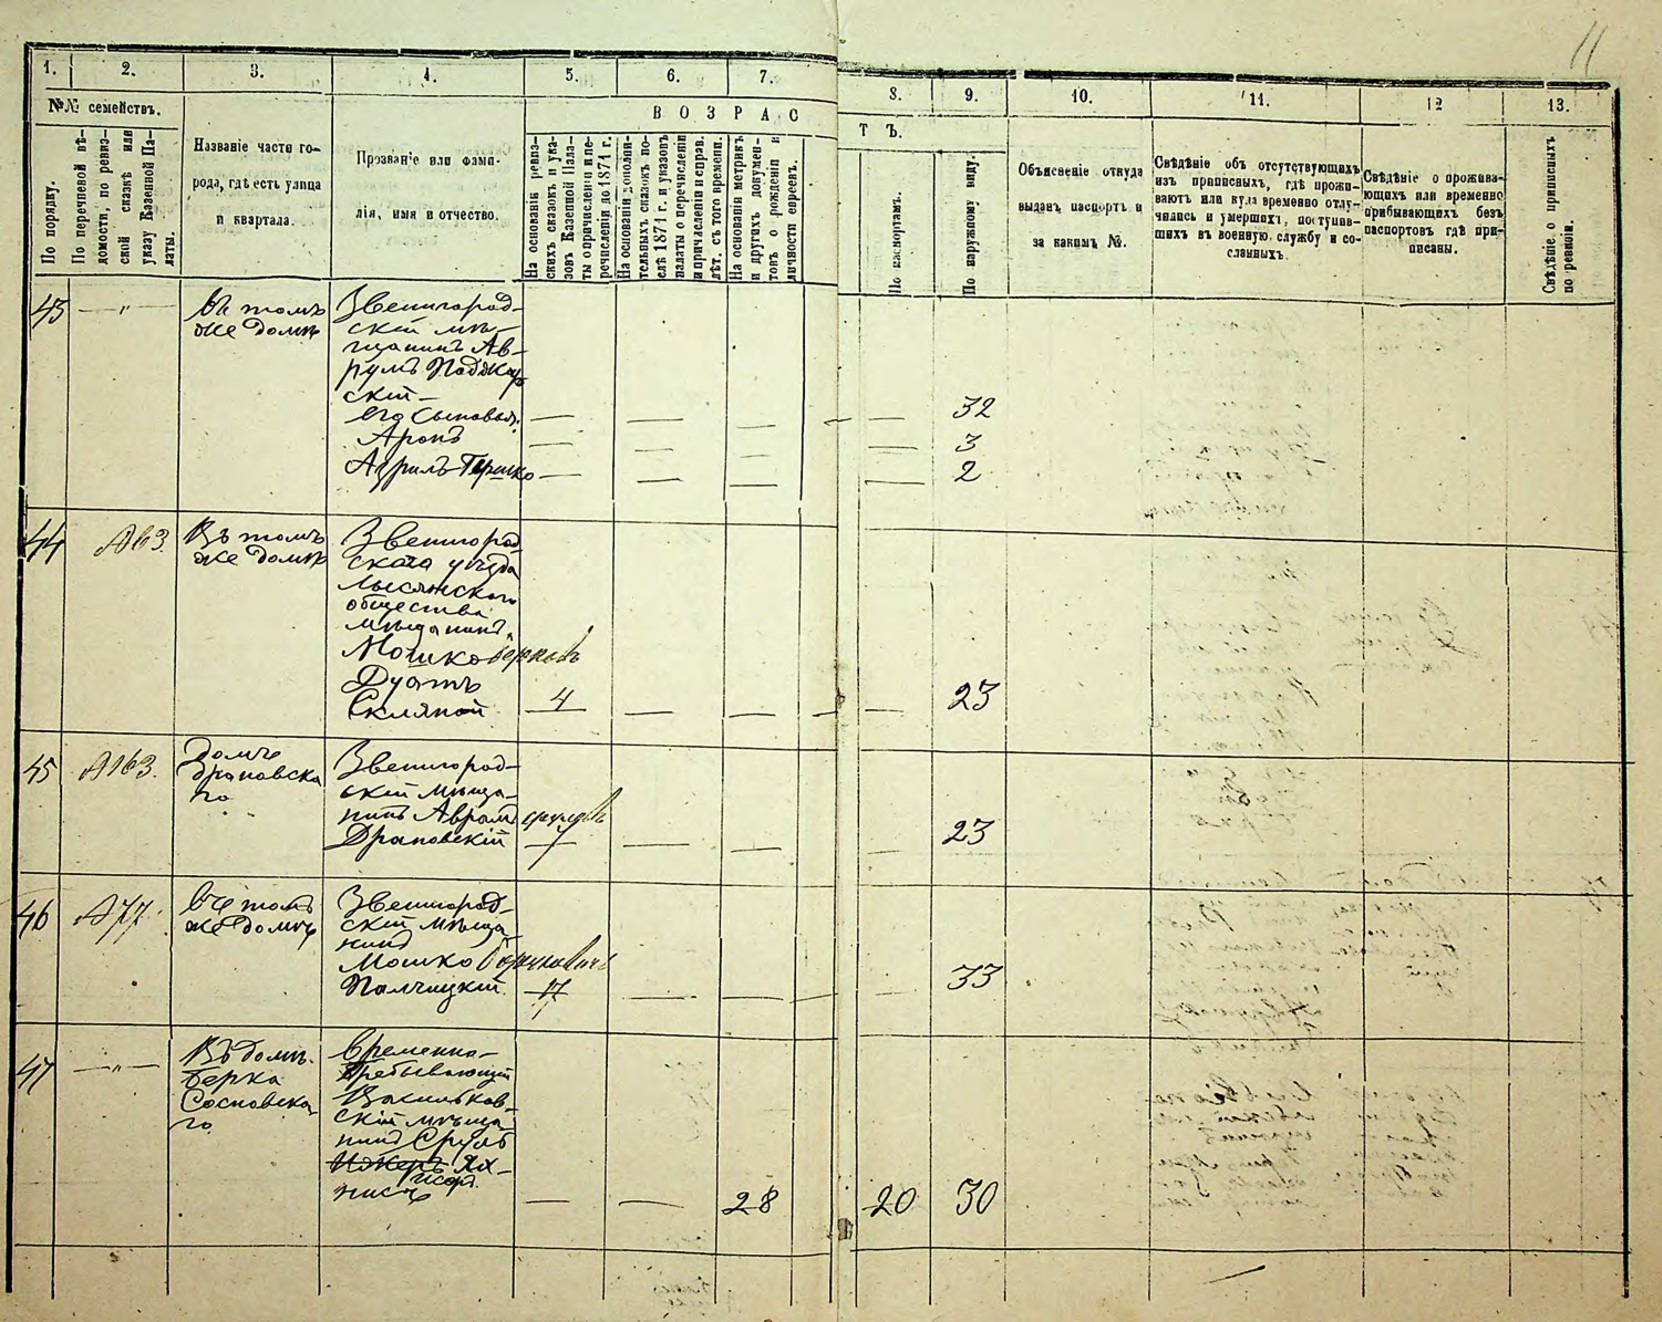 11
1.
2.
3.
4.
5.
6.
7.
8.
9.
10.
11.
12
13.
№№ семействъ.
По порядку.
По перечневой вѣ-
домости, по ревиз-
ской сказкѣ или
указу Казенной Па-
латы.
Названіе части го-
рода, гдѣ есть улица
и квартала.
Прозваніе или фами-
лія, имя и отчество.
ВОЗРАС
ТЪ.
На основаніи ревиз-
скихъ сказокъ и ука-
зовъ Казенной Пала-
ты о причисленіи и пе-
речисленіи до 1871 г.
На основаніи дополни-
тельныхъ сказокъ по-
слѣ 1871 г. и указовъ
палаты о перечисленіи
и причисленіи и справ.
лѣт. съ того времени.
На основаніи метрикъ
и другихъ докумен-
товъ о рожденіи и
личности евреевъ.
По паспортамъ.
По наружному виду.
Объясненіе откуда
выданъ паспортъ и
за какимъ №.
Свѣдѣніе объ отсутствующихъ
изъ приписныхъ, гдѣ прожи-
ваютъ или куда временно отлу-
чились и умершихъ, поступив-
шихъ въ военную службу и со-
сланныхъ.
Свѣдѣніе о прожива-
ющихъ или временно
прибывающихъ безъ
паспортовъ гдѣ при-
писаны.
Свѣдѣніе о приписныхъ
по ревизіи.
43
— " —
Въ томъ
же домѣ
Звенигород-
скій мѣ-
щанинъ Ав-
румъ
скій —
его сыновья:
— — — — — 32
Аронъ
— — — — 3
Азрилъ-Гершко
— — — — 2
44
А63.
Въ томъ
же домѣ
Звенигород
скаго уѣзда
Лысянскаго
общества
мѣщанинъ
Мошко Берковъ
Скляной
4 — — — — 23
45
А163.
Домъ
Драновска
го
Звенигород-
скій мѣща-
нинъ Аврамъ
Драновскій
7 — — — 23
46
А77.
Въ томъ
же домѣ
Звенигород-
скій мѣща
нинъ
Мошко
Палчицкій.
17 — — — 33
47
— " —
Въ домѣ.
Берка
Сосновска-
го
Временно-
пребывающій
Васильков-
скій мѣща
нинъ Сруль
— — 28 20 30